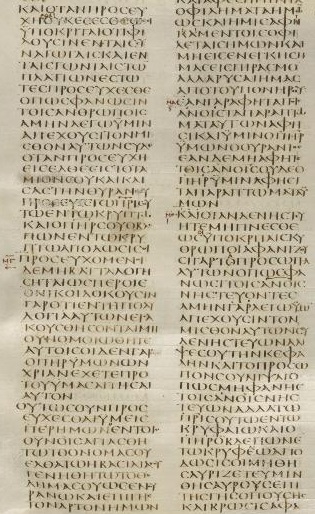 ΚΑΙΟΤΑΝΠΡΟϹΕΥ
ΧΗΟΥΚΕϹΕϹΘΕΩϹ
ΥΠΟΚΡΙΤΑΙΟΤΙΦΙ
ΛΟΥϹΙΝΕΝΤΑΙϹϹΥ
ΝΑΓΩΓΑΙϹΚΑΙΕΝ
ΤΑΙϹΓΩΝΙΑΙϹΤΩ
ΠΛΑΤΙΩΝΕϹΤΩ
ΤΕϹΠΡΟϹΕΥΧΕϹΘΕ
ΟΠΩϹΦΑΝΩϹΙΝ
ΤΟΙϹΑΝΘΡΩΠΟΙϹ
ΑΜΗΝΛΕΓΩΥΜΙΝ
ΑΠΕΧΟΥϹΙΤΟΝΜΙ
ϹΘΟΝΑΥΤΩΝϹΥΔΕ
ΟΤΑΝΠΡΟϹΕΥΧΗ
ΕΙϹΕΛΘΕΕΙϹΤΟΤΑ
ΜΙΟΝϹΟΥΚΑΙΚΛΙ
ϹΑϹΤΗΝΘΥΡΑΝϹΟΥ
ΤΩΕΝΤΩΚΡΥΠΤΩ
ΚΑΙΟΠΗΡϹΟΥΟΒΛΕ
ΠΩΝΕΝΤΩΚΡΥ
ΠΤΩΑΠΟΔΩϹΕΙϹΟΙ
ΠΡΟϹΕΥΧΟΜΕΝΟΙ
ΔΕΜΗΒΑΤΤΑΛΟΓΗ
ϹΗΤΑΙΩϹΠΕΡΟΙΕ
ΘΝΙΚΟΙΔΟΚΟΥϹΙΝ
ΓΑΡΟΤΙΕΝΤΗΠΟΛΥ
ΛΟΓΙΑΑΥΤΩΝΕΙϹΑ
ΚΟΥϹΘΗϹΟΝΤΑΙΜΗ
ΟΥΝΟΜΟΙΩΘΗΤΕ
ΑΥΤΟΙϹΟΙΔΕΝΓΑΡ
ΟΠΗΡΥΜΩΝΩΝ
ΧΡΙΑΝΕΧΕΤΕΠΡΟ
ΤΟΥΥΜΑϹΑΙΤΗϹΑΙ
ΑΥΤΟΝ
ΟΥΤΩϹΟΥΝΠΡΟϹ
ΕΥΧΕϹΘΑΙΥΜΕΙϹ
ΠΕΡΗΜΩΝΟΕΝΤΟΙϹ
ΟΥΝΟΙϹΑΓΙΑϹΘΗ
ΤΩΤΟΟΝΟΜΑϹΟΥ
ΕΛΘΑΤΩΗΒΑϹΙΛΙΑϹΟΥ
ΓΕΝΗΘΗΤΩΤΟΘΕ
ΛΗΜΑϹΟΥΩϹΕΝΟΥ
ΡΑΝΩΚΑΙΕΠΙΓΗϹ
ΤΟΝΑΡΤΟΝΗΜΩΝ
ΚΑΙΑΦΕϹΗΜΙΝΤΑ
ΟΦΙΛΗΜΑΤΑΗΜΩ
ΩϹΚΑΙΗΜΕΙϹΑΦΗ
ΚΑΜΕΝΤΟΙϹΟΦΕΙ
ΛΕΤΑΙϹΗΜΩΝΚΑΙ
ΜΗΕΙϹΕΝΕΓΚΗϹΗ
ΜΑϹΕΙϹΠΙΡΑϹΜΟ
ΑΛΛΑΡΥϹΑΙΗΜΑϹ
ΑΠΟΤΟΥΠΟΝΗΡΟΥ
ΕΑΝΓΑΡΑΦΗΤΑΙΤΟΙϹ
ΑΝΟΙϹΤΑΠΑΡΑΠΤΩ
ΜΑΤΑΑΥΤΩΝΑΦΗ
ϹΙΚΑΙΥΜΙΝΟΠΗΡ
ΥΜΩΝΟΟΥΡΑΝΙΟϹ
ΕΑΝΔΕΜΗΑΦΗΤΕ
ΤΟΙϹΑΝΟΙϹΟΥΔΕΟ
ΠΗΡΥΜΙΝΑΦΗϹΙ
ΤΑΠΑΡΑΠΤΩΜΑΤΑΥ
ΜΩΝ
ΚΑΙΟΤΑΝΔΕΝΗϹΤΕΥ
ΗΤΕΜΗΓΙΝΕϹΘΕ
ΩϹΟΙΥΠΟΚΡΙΤΑΙϹΚΥ
ΘΡΩΠΟΙΑΦΑΝΙΖΟΥ
ϹΙΓΑΡΤΟΠΡΟϹΩΠΟ
ΑΥΤΩΝΟΠΩϹΦΑΝΩ
ϹΙΝΤΟΙϹΑΝΟΙϹ
ΝΗϹΤΕΥΟΝΤΕϹ
ΑΜΗΝΓΑΡΛΕΓΩΥΜΙ
ΑΠΕΧΟΥϹΙΝΤΟΝ
ΜΙϹΘΟΝΑΥΤΩΝϹΥ
ΔΕΝΗϹΤΕΥΩΝΑΛΕΙ
ΨΕϹΟΥΤΗΝΚΕΦΑ
ΛΗΝΚΑΙΤΟΠΡΟϹΩ
ΠΟΝϹΟΥΝΙΨΑΙΟ
ΠΩϹΜΗΦΑΝΗϹ
ΤΟΙϹΑΝΟΙϹΝΗϹ
ΤΕΥΩΝΑΛΛΑΤΩ
ΠΡΙϹΟΥΤΩΕΝΤΩ
ΚΡΥΦΑΙΩΚΑΙΟ
ΠΗΡΟΒΛΕΠΩΝΕ
ΤΩΚΡΥΦΑΙΩΑΠΟ
ΔΩϹΙϹΟΙΜΗΘΗ
ϹΑΥΡΙΖΕΤΕΥΜΙΝ
ΘΗϹΑΥΡΟΥϹΕΠΙ
ΤΗϹΓΗϹΟΠΟΥϹΗϹ
ΚΑΙΒΡΩϹΙϹΑΦΑ